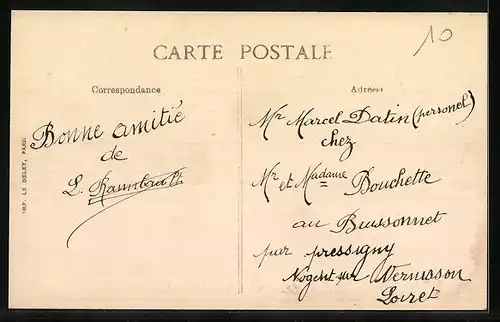 10
CARTE POSTALE
Correspondance
Adresse
Bonne amitié
de
L. Rambault
Mr Marcel Datin (personel)
chez
Mr et Madame Bouchette
au Buissonnet
par pressigny
Nogent sur Vernisson
Loiret
IMP. LE DELEY, PARIS